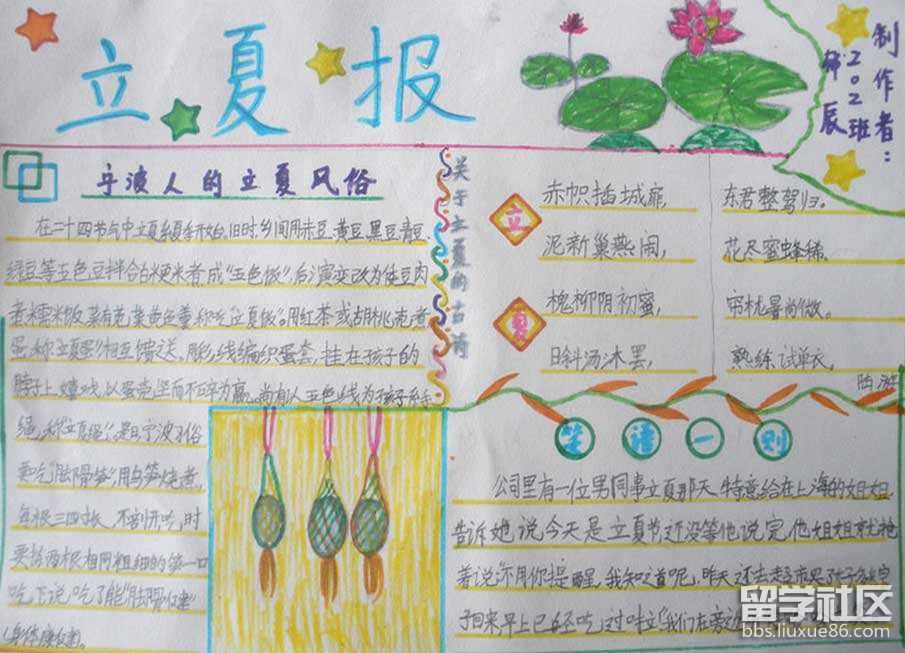 立夏报
制作者:
202班
辰
宁波人的立夏风俗
在二十四节气中立夏是夏季开始日,旧时乡间用赤豆、黄豆、黑豆、青豆、
绿豆等五色豆拌合白粳米煮成"五色饭",后演变改为倭豆肉
煮糯米饭,菜有苋菜黄鱼羹,称吃立夏饭。用红茶或胡桃壳煮
蛋,称立夏蛋,相互馈送。用彩线编织蛋套,挂在孩子的
脖子上嬉戏,以蛋壳坚而不碎为赢。尚有人五色线为孩子系手
绳,称"立夏绳"。是日宁波习俗
要吃"脚骨笋"用乌笋烧煮,
每根三四寸长,不剖开吃,时
要拣两根相同粗细的笋一口
吃下,说吃了能"脚骨健"
(身体康健)。
关于立夏的古诗
立
夏
赤帜插城扉, 东君整驾归。
泥新巢燕闹, 花尽蜜蜂稀。
槐柳阴初蜜, 帘栊暑尚微。
日斜汤沐罢, 熟练试单衣。
陆游
笑话一则
公司里有一位男同事立夏那天,特意给在上海的姐姐
告诉她说今天是立夏节还没等他说完,他姐姐就抢
着说:"不用你提醒,我知道呢,昨天还去超市买了
回来早上已经吃过
留学社区
bbs.liuxue86.com